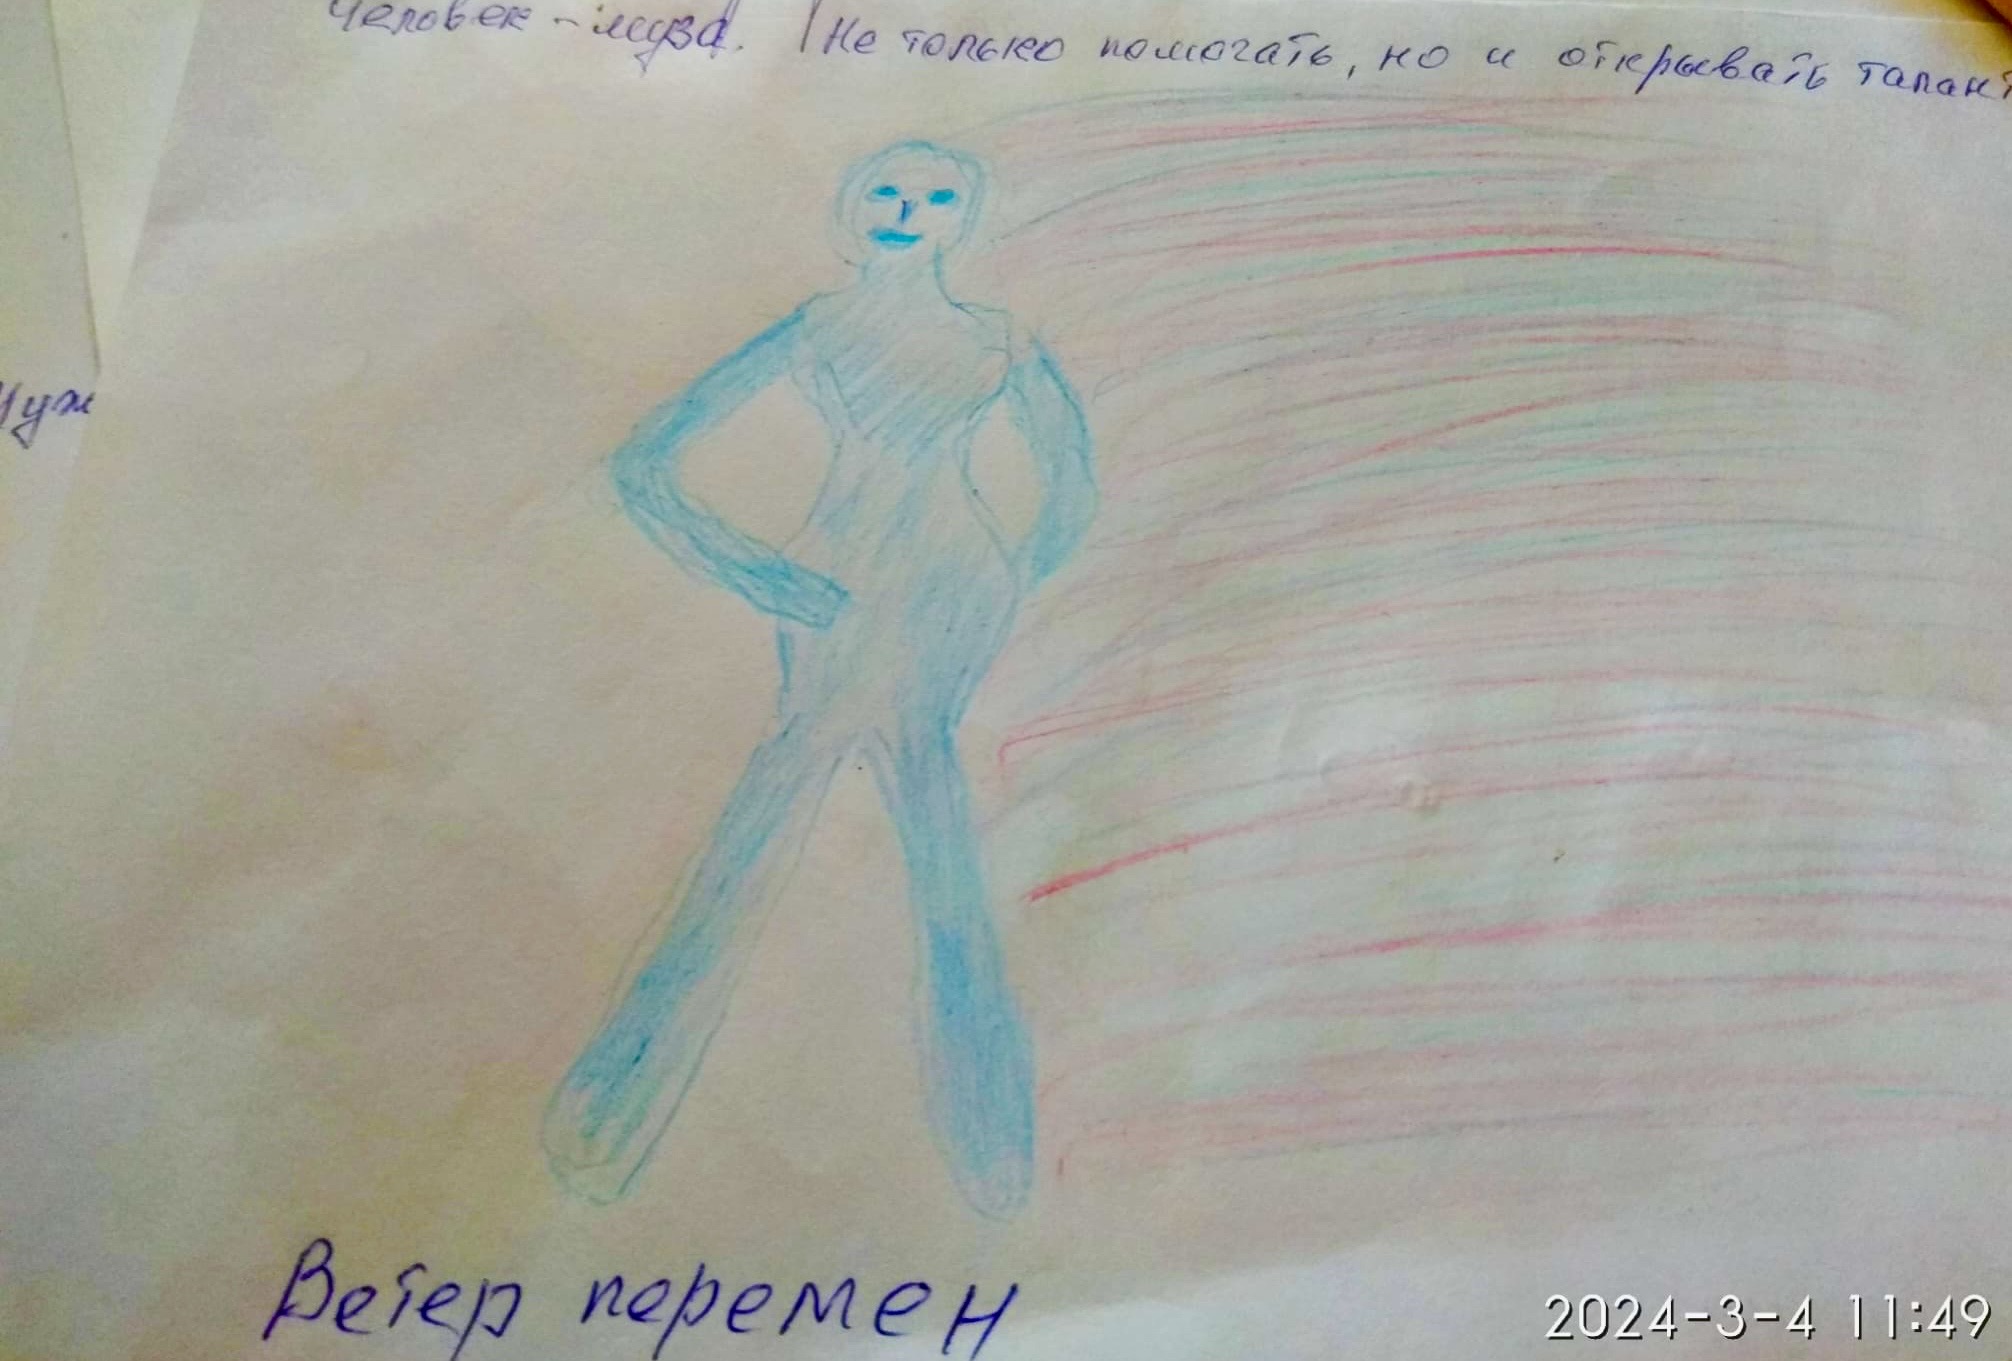 Человек-муза. | Не только помогать, но и открывать талант
Чуж
Ветер перемен
2024-3-4 11:49